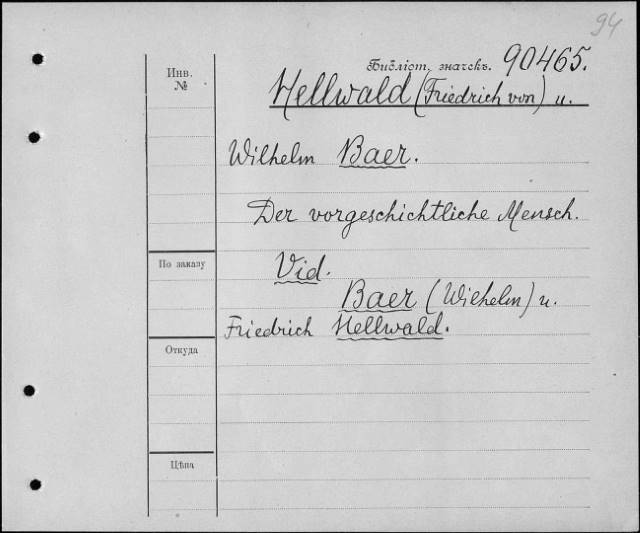 94
Библіот. значекъ. 90465.
Инв.
№
Hellwald (Friedrich von) u.
Wilhelm Baer.
Der vorgeschichtliche Mensch.
По заказу
Vid.
Baer (Wilhelm) u.
Friedrich Hellwald.
Откуда
Цѣна